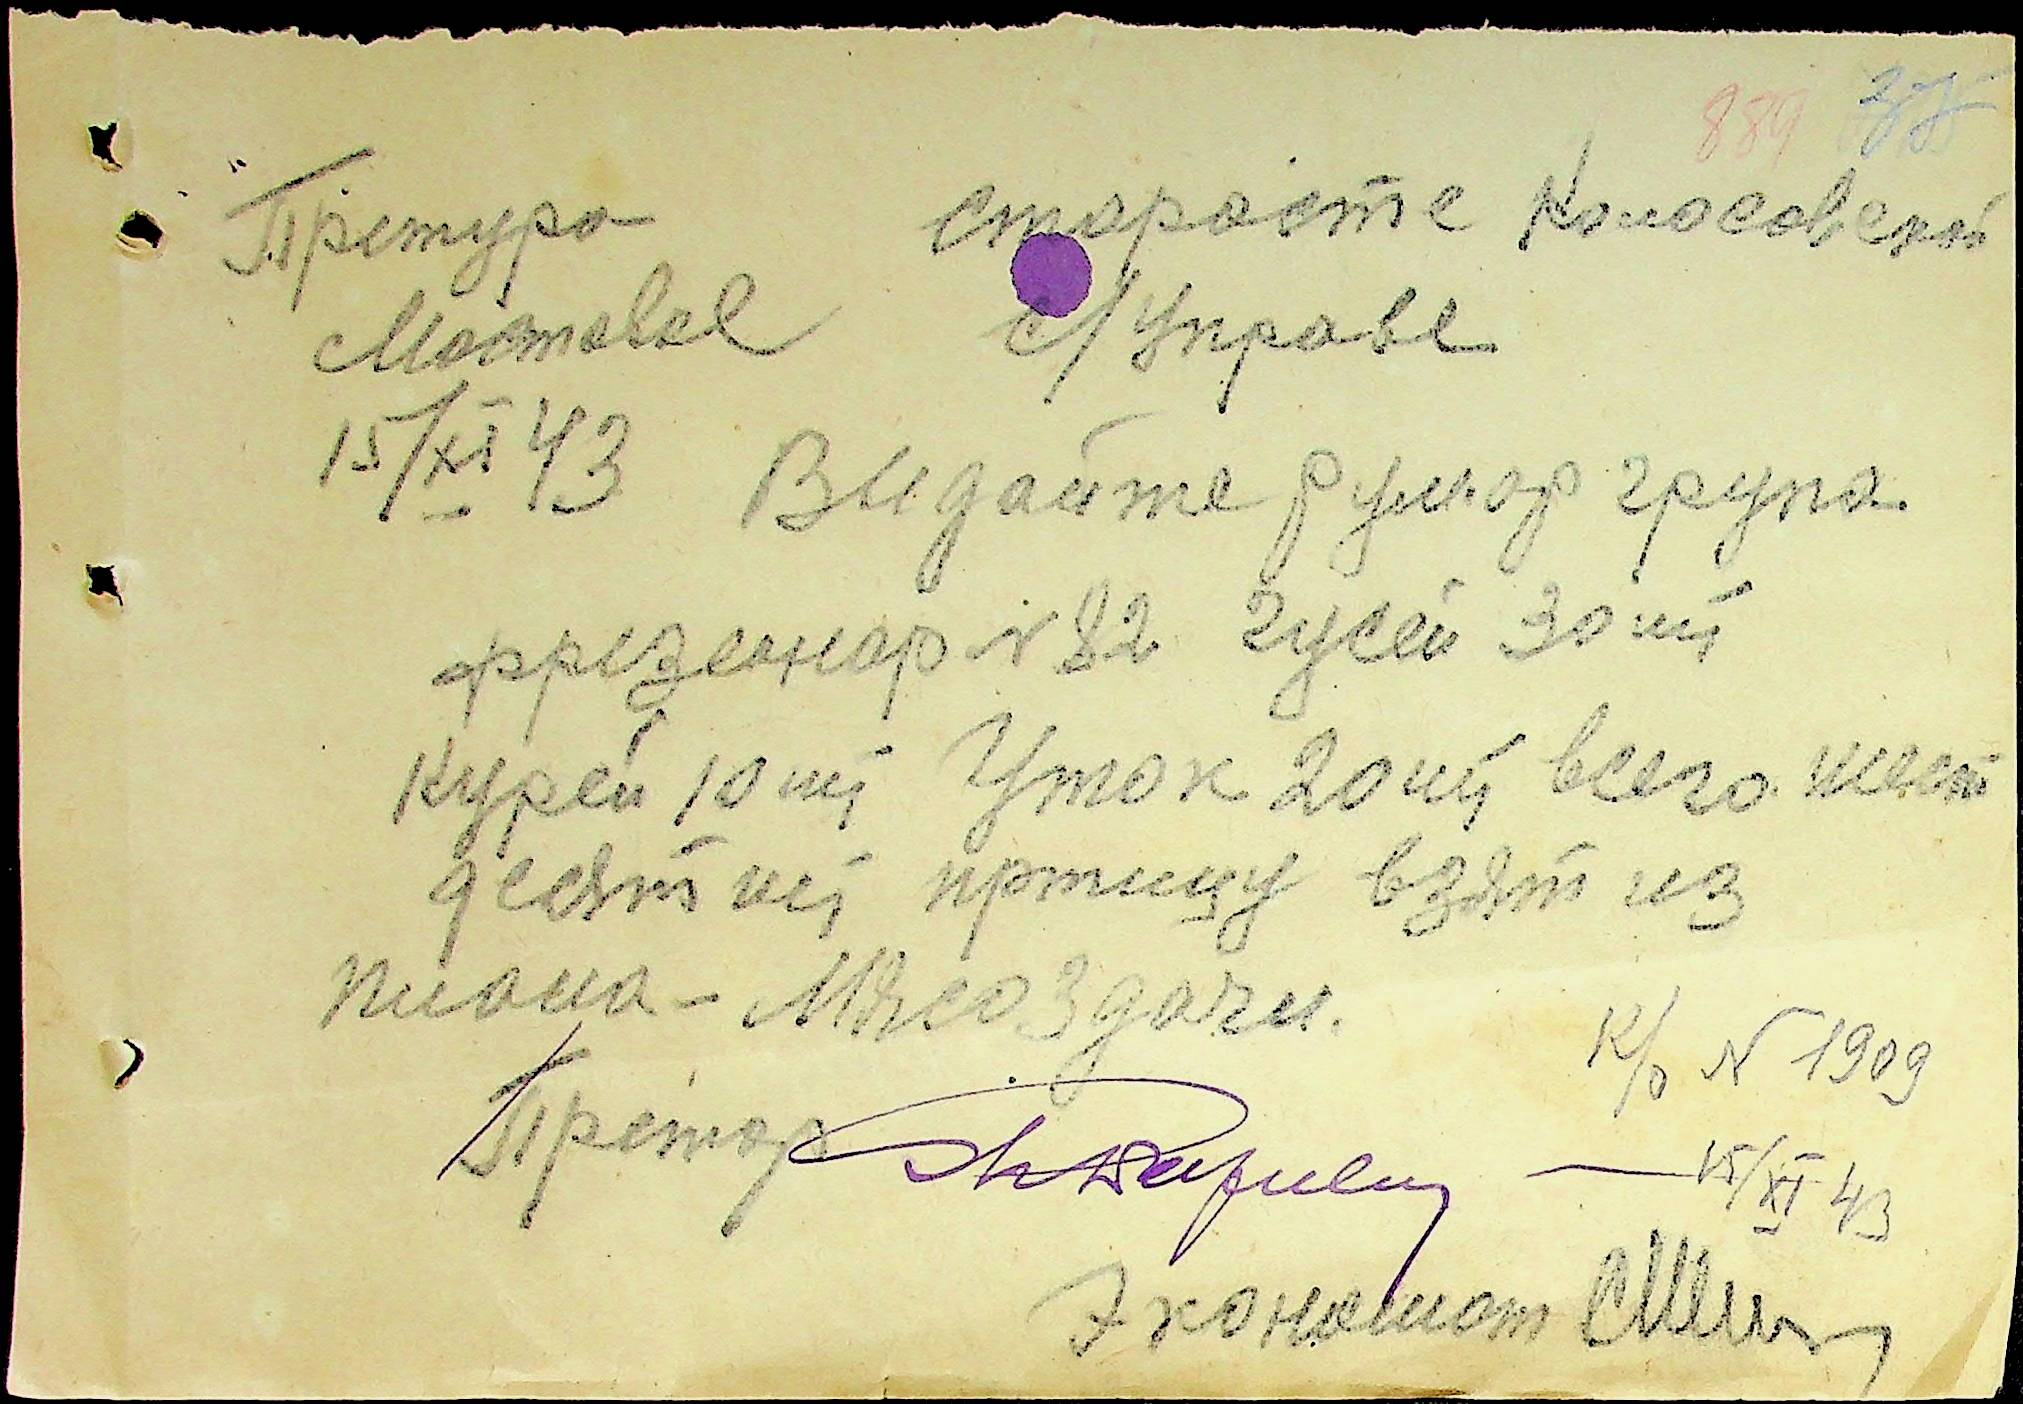 889
Претура
Мостовое
15/XI 43
старосте Колосовской
с/Управе
Выдайте румор група
фризонар № 82 гусей 30 шт
курей 10 шт Уток 20 шт всего шест
десят шт пртицу взят из
плана - Мясоздачи.
Претор
К/о № 1909
15/XI 43
Экономат